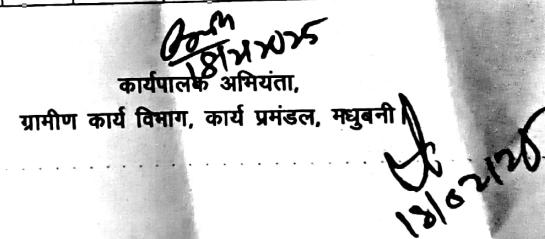 18/2/2025
कार्यपालक अभियंता,
ग्रामीण कार्य विभाग, कार्य प्रमंडल, मधुबनी
18/02/25